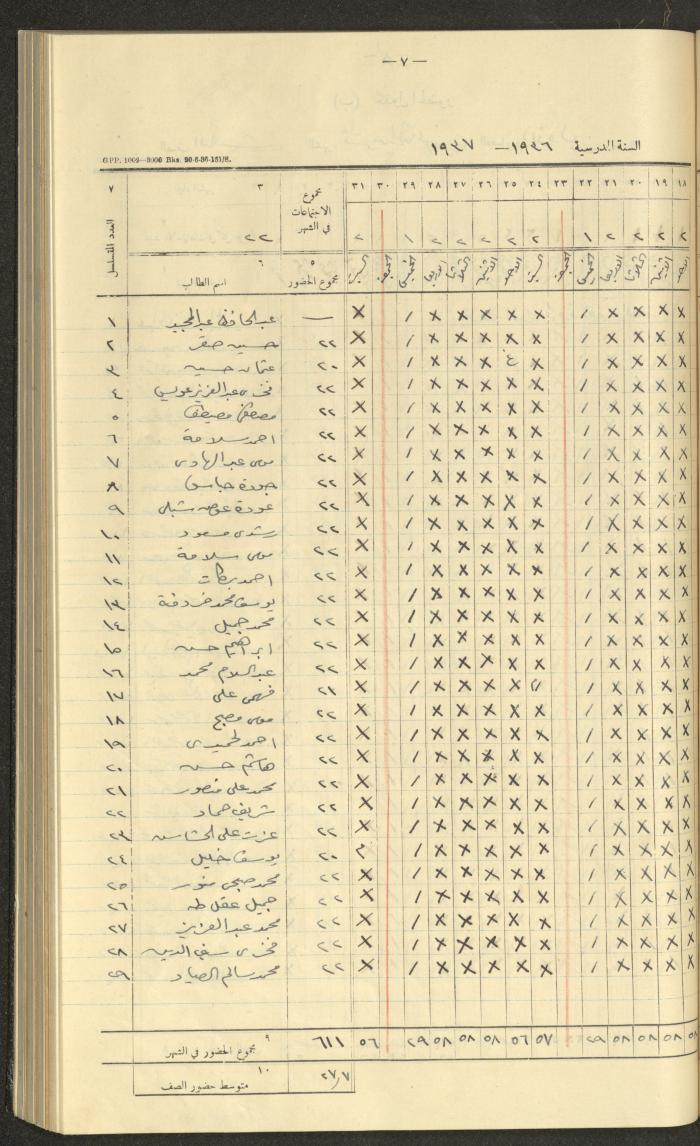 — ٧ —
السنة المدرسية ١٩٣٦ — ١٩٣٧
GPP. 1002—3000 Bks. 20-6-36-151/S.
٧ ٣ مجموع الاجتماعات في الشهر ٣١ ٣٠ ٢٩ ٢٨ ٢٧ ٢٦ ٢٥ ٢٤ ٢٣ ٢٢ ٢١ ٢٠ ١٩ ١٨
٢٢ ٢ ١ ٢ ٢ ٢ ٢ ٢ ١ ٢ ٢ ٢ ٢
العدد المتسلسل ٦ اسم الطالب ٥ مجموع الحضور السبت الجمعة الخميس الاربعا الثلاثا الاثنين الاحد السبت الجمعة الخميس الاربعا الثلاثا الاثنين الاحد
١ عبد الحافظ عبد المجيد — X / X X X X X / X X X X
٢ حسين صقر ٢٢ X / X X X X X / X X X X
٣ عثمان حسين ٢٠ X / X X X غ X / X X X X
٤ فخري عبد العزيز عويس ٢٢ X / X X X X X / X X X X
٥ مصطفى ٢٢ X / X X X X X / X X X X
٦ احمد سلامة ٢٢ X / X X X X X / X X X X
٧ موسى عبد الهادي ٢٢ X / X X X X X / X X X X
٨ جودة ٢٢ X / X X X X X / X X X X
٩ عودة عوض شبلي ٢٢ X / X X X X X / X X X X
١٠ رشدي مسعود ٢٢ X / X X X X X / X X X X
١١ موسى سلامة ٢٢ X / X X X X X / X X X X
١٢ احمد بركات ٢٢ X / X X X X X / X X X X
١٣ يوسف محمد ٢٢ X / X X X X X / X X X X
١٤ محمد جميل ٢٢ X / X X X X X / X X X X
١٥ ابراهيم حسن ٢٢ X / X X X X X / X X X X
١٦ عبد السلام محمد ٢٢ X / X X X X X / X X X X
١٧ فهمي علي ٢١ X / X X X X / X X X X
١٨ موسى مصبح ٢٢ X / X X X X X / X X X X
١٩ احمد ٢٢ X / X X X X X / X X X X
٢٠ هاشم حسن ٢٢ X / X X X X X / X X X X
٢١ محمد علي منصور ٢٢ X / X X X X X / X X X X
٢٢ شريف حماد ٢٢ X / X X X X X / X X X X
٢٣ عزت علي ٢٢ X / X X X X X / X X X X
٢٤ يوسف خليل ٢٠ م / X X X X X / X X X X
٢٥ محمد صبحي ٢٢ X / X X X X X / X X X X
٢٦ جميل عقل طه ٢٢ X / X X X X X / X X X X
٢٧ محمد عبد العزيز ٢٢ X / X X X X X / X X X X
٢٨ فخري سيف الدين ٢٢ X / X X X X X / X X X X
٢٩ محمد سالم الصياد ٢٢ X / X X X X X / X X X X
٩ مجموع الحضور في الشهر ٦١١ ٥٦ ٢٩ ٥٨ ٥٨ ٥٨ ٥٦ ٥٧ ٢٩ ٥٨ ٥٨ ٥٨ ٥٨
١٠ متوسط حضور الصف ٢٧٫٧